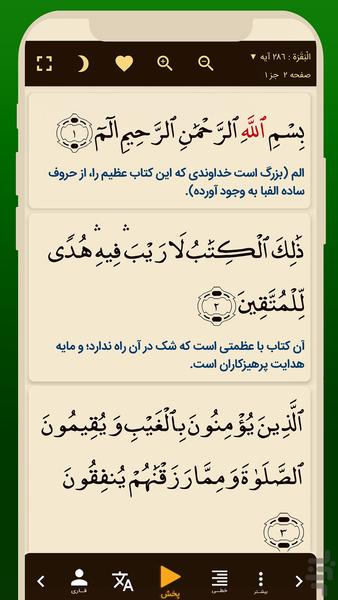 الْبَقَرَة : ۲۸۶ آیه ▼
صفحه ۲ جزء ۱
بِسْمِ ٱللَّهِ ٱلرَّحْمَٰنِ ٱلرَّحِيمِ الٓمٓ ۱
الم (بزرگ است خداوندی که این کتاب عظیم را، از حروف
ساده الفبا به وجود آورده).
ذَٰلِكَ ٱلْكِتَٰبُ لَا رَيْبَ ۛ فِيهِ ۛ هُدًى
لِّلْمُتَّقِينَ ۲
آن کتاب با عظمتی است که شک در آن راه ندارد؛ و مایه
هدایت پرهیزکاران است.
ٱلَّذِينَ يُؤْمِنُونَ بِٱلْغَيْبِ وَيُقِيمُونَ
ٱلصَّلَوٰةَ وَمِمَّا رَزَقْنَٰهُمْ يُنفِقُونَ
۳
بیشتر خطی پخش قاری